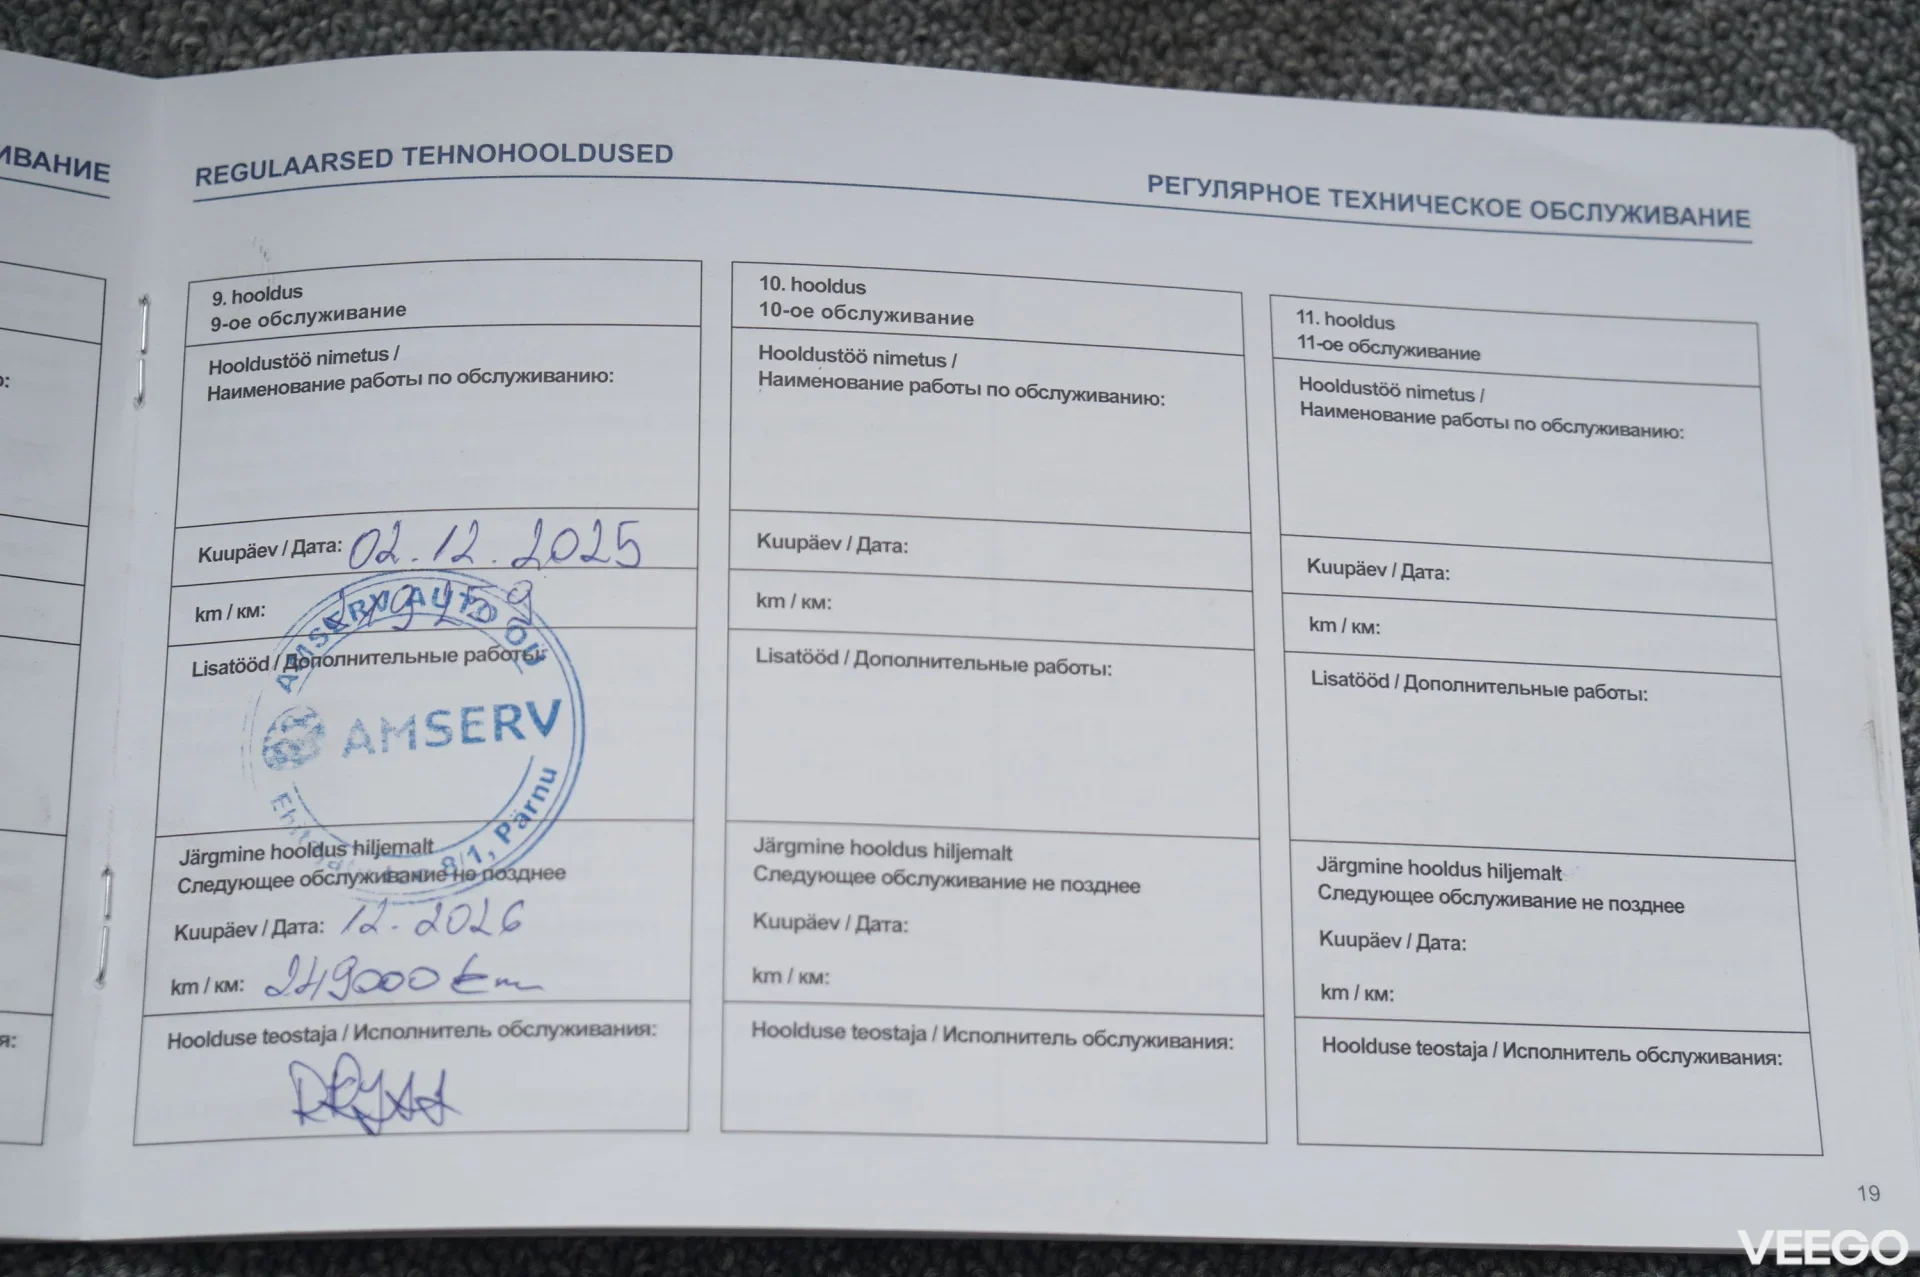 ИВАНИЕ
REGULAARSED TEHNOHOOLDUSED
РЕГУЛЯРНОЕ ТЕХНИЧЕСКОЕ ОБСЛУЖИВАНИЕ
9. hooldus
9-ое обслуживание
Hooldustöö nimetus /
Наименование работы по обслуживанию:
Kuupäev / Дата: 02.12.2025
km / км:
Lisatööd / Дополнительные работы:
AMSERV AUTO OÜ
AMSERV
8/1, Pärnu
Järgmine hooldus hiljemalt
Следующее обслуживание не позднее
Kuupäev / Дата: 12.2026
km / км: 249000 km
Hoolduse teostaja / Исполнитель обслуживания:
10. hooldus
10-ое обслуживание
Hooldustöö nimetus /
Наименование работы по обслуживанию:
Kuupäev / Дата:
km / км:
Lisatööd / Дополнительные работы:
Järgmine hooldus hiljemalt
Следующее обслуживание не позднее
Kuupäev / Дата:
km / км:
Hoolduse teostaja / Исполнитель обслуживания:
11. hooldus
11-ое обслуживание
Hooldustöö nimetus /
Наименование работы по обслуживанию:
Kuupäev / Дата:
km / км:
Lisatööd / Дополнительные работы:
Järgmine hooldus hiljemalt
Следующее обслуживание не позднее
Kuupäev / Дата:
km / км:
Hoolduse teostaja / Исполнитель обслуживания:
19
VEEGO